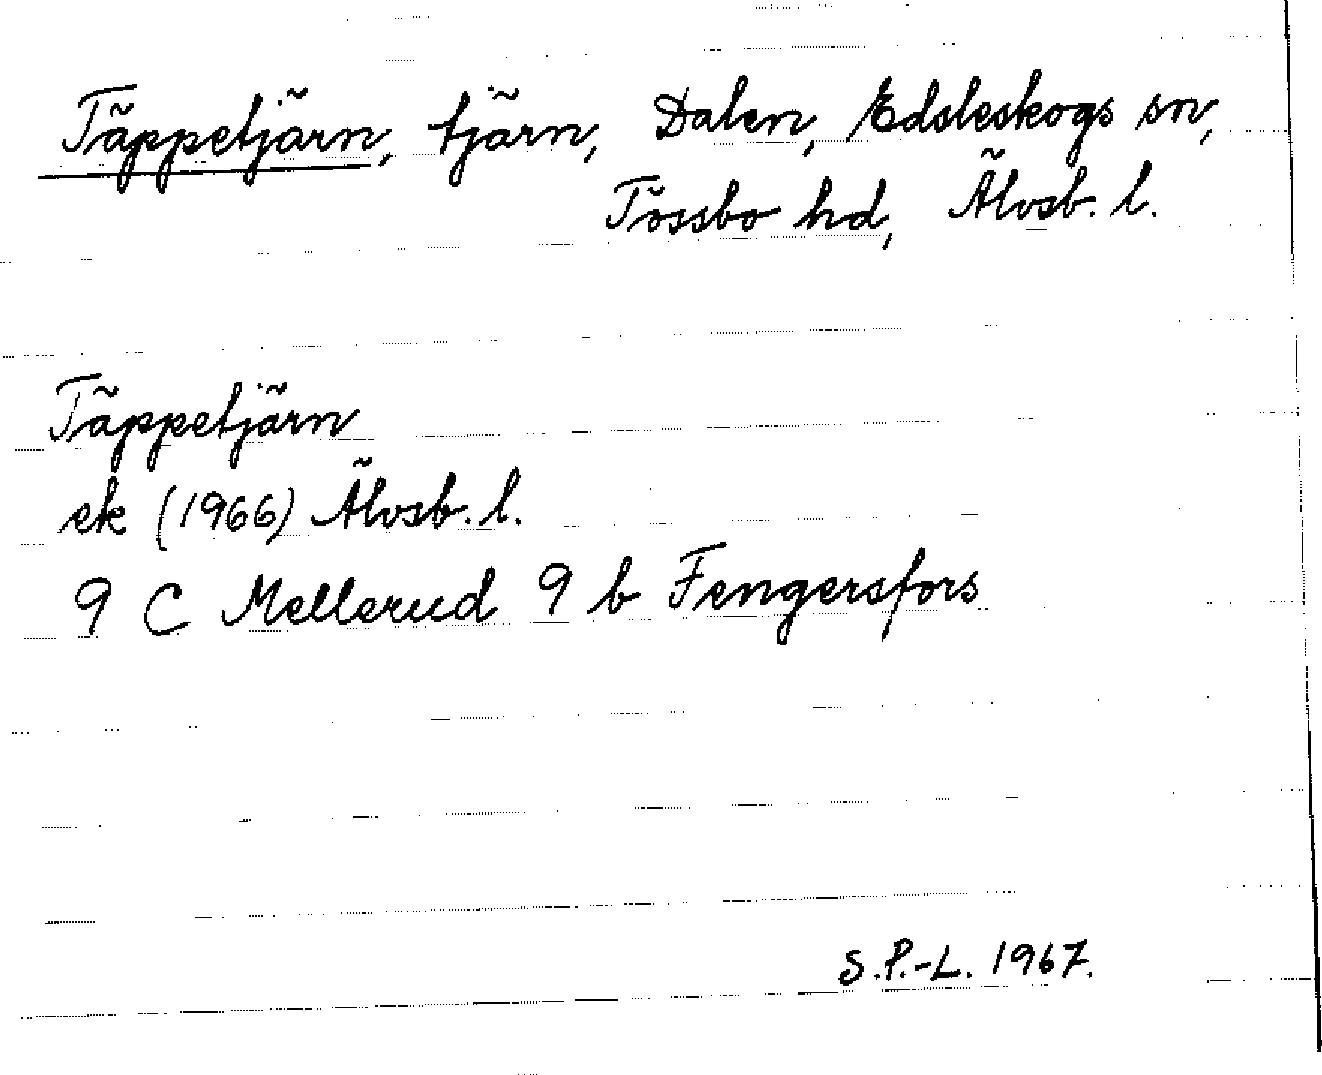 Täppetjärn, tjärn, Dalen, Edsleskogs sn,
Tössbo hd, Älvsb. l.
Täppetjärn
ek (1966) Älvsb. l.
9 C Mellerud 9 b Fengersfors
S.P.-L. 1967.